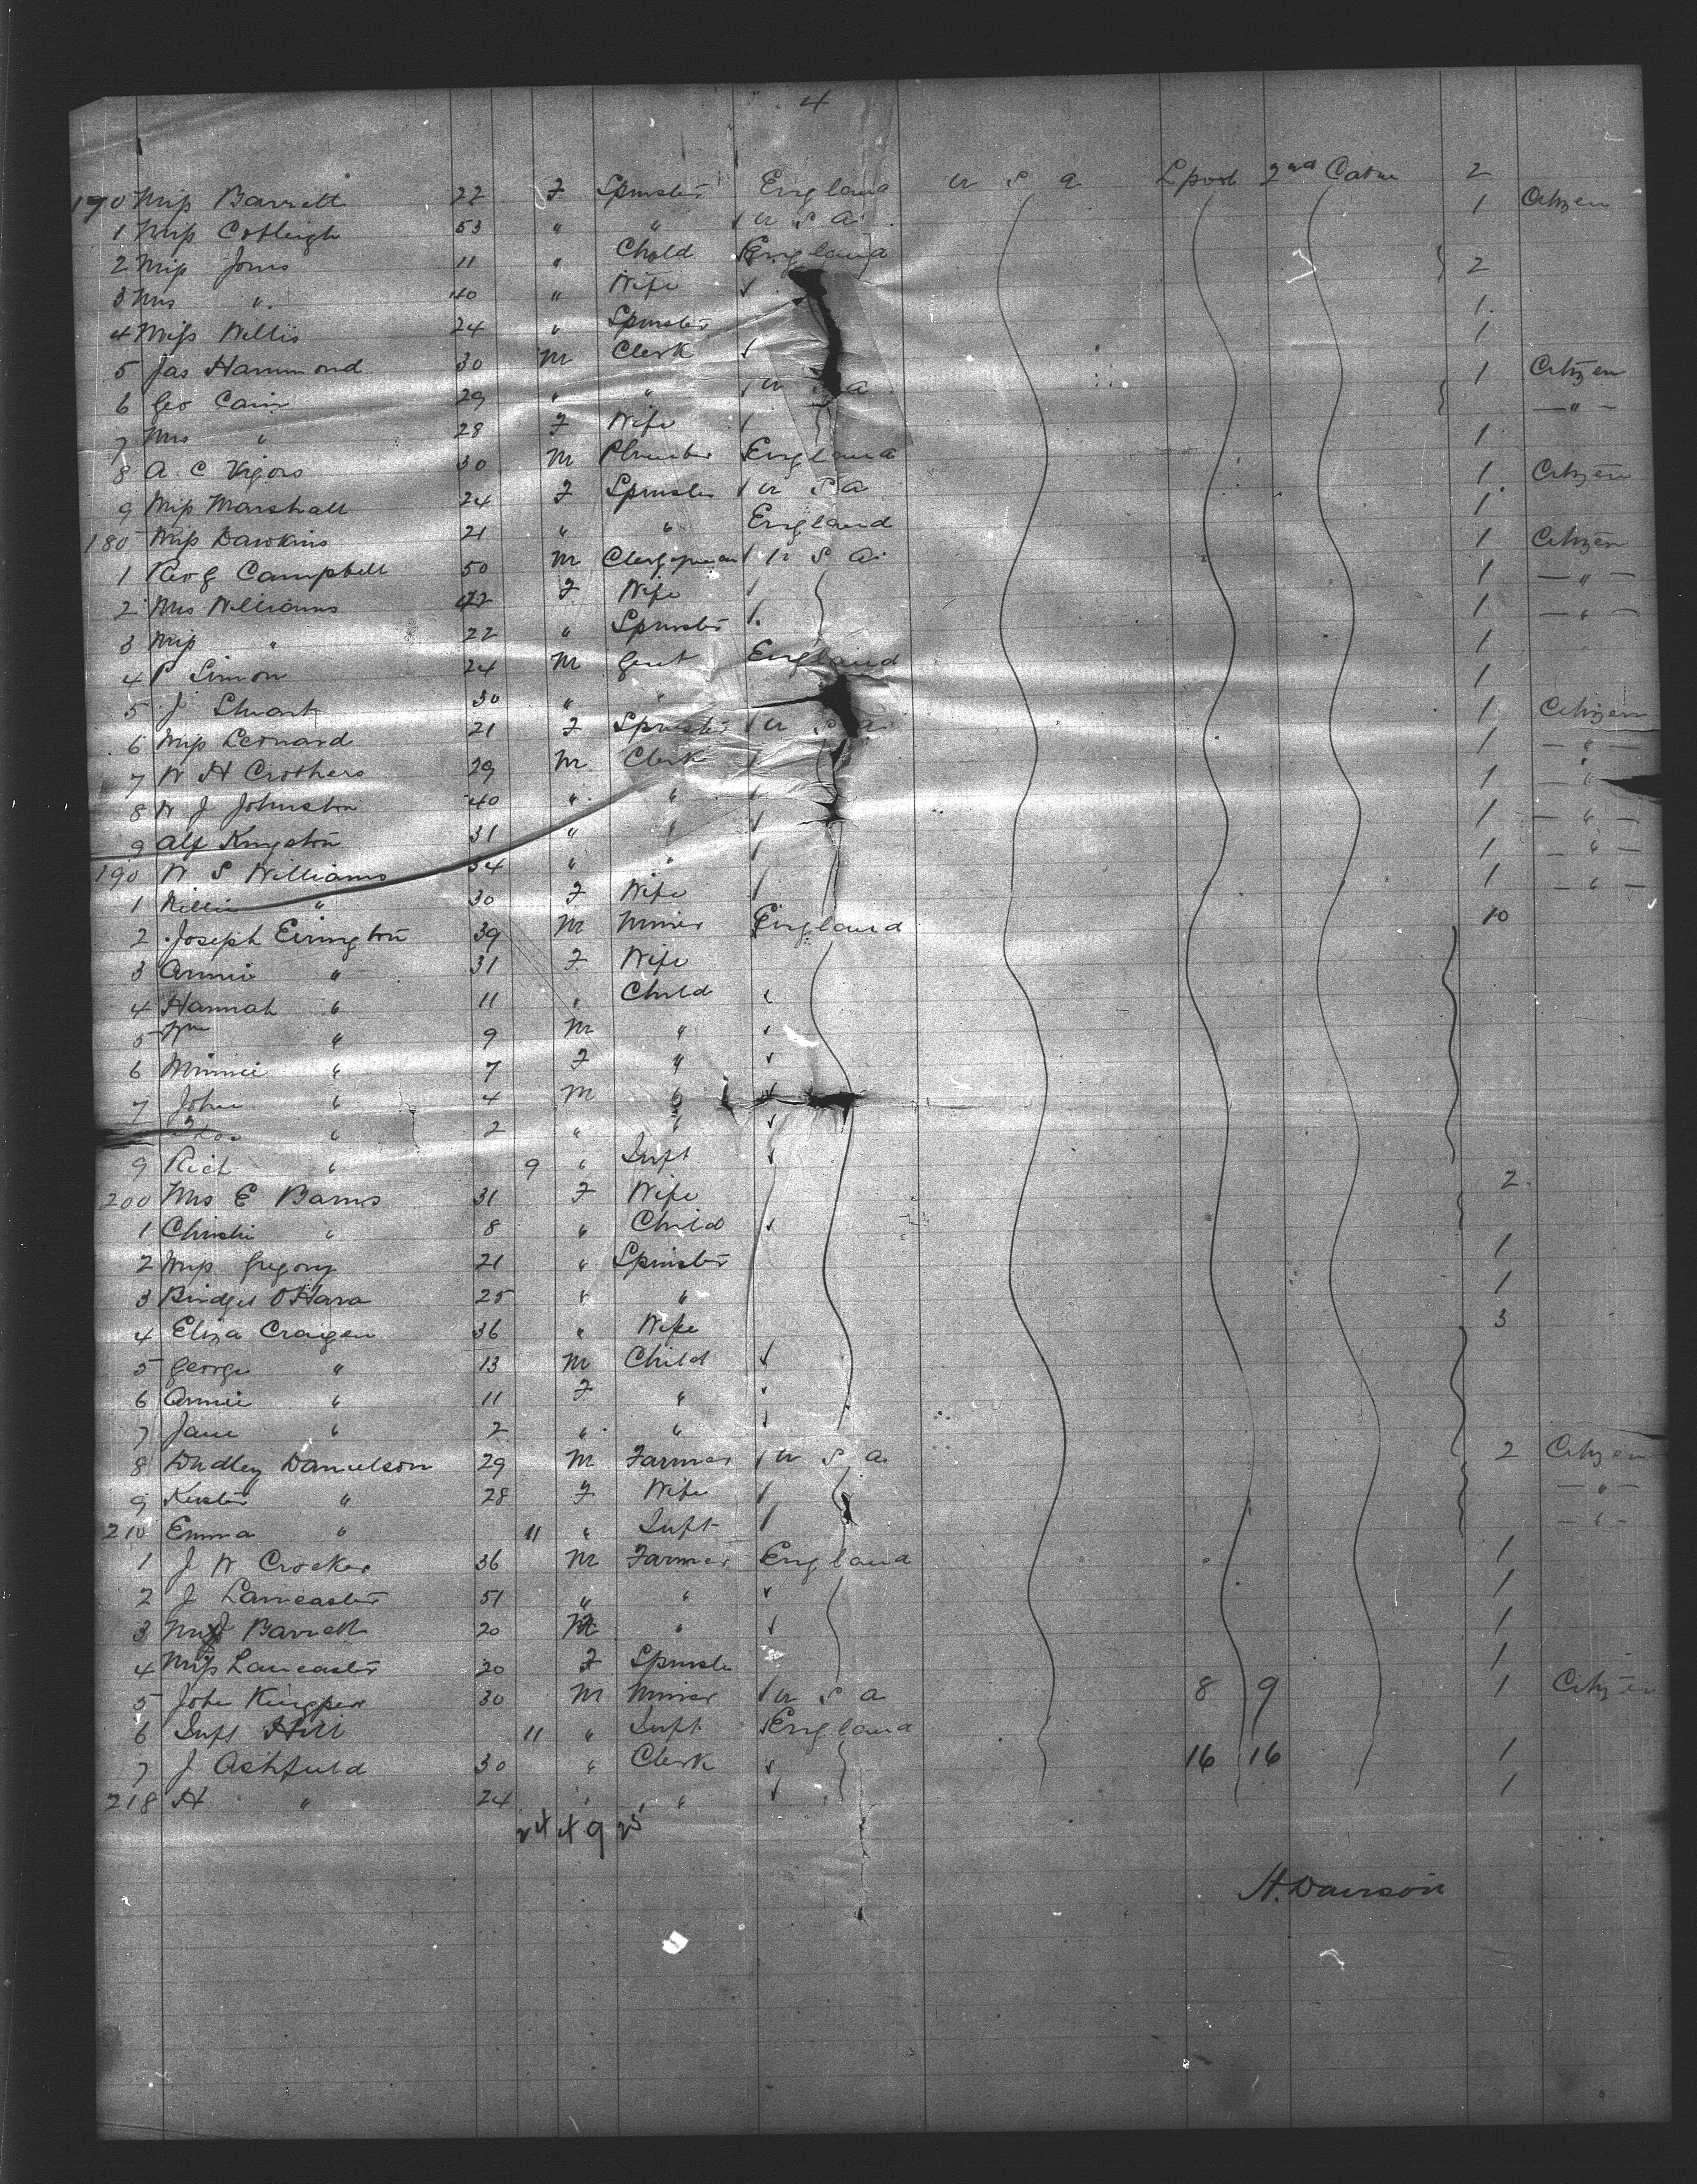 4
170 Miss Barrett 22 F Spinster England U S A Lpool 2nd Cabin 2
1 Miss Cobleigh 53 " " U S A. 1 Citizen
2 Miss Jones 11 " Child England 2
3 Mrs " 40 " Wife
4 Miss Willis 24 " Spinster 1
5 Jas Hammond 30 M Clerk 1
6 Geo Cain 29 " " U S A 1 Citizen
7 Mrs " 28 F Wife — " —
8 A. C Vigors 30 M Plumber England 1
9 Miss Marshall 24 F Spinster U S A 1 Citizen
180 Miss Dawkins 21 " " England 1
1 Campbell 50 M Clergyman U S A. 1 Citizen
2 Mrs Williams F Wife 1 — " —
3 Miss " 22 " Spinster 1 — " —
4 P Simon 24 M Gent England 1
5 J Stuart 30 " " 1
6 Miss Leonard 21 F Spinster U S A 1 Citizen
7 W H Crothers 29 M Clerk 1 — " —
8 W J Johnston 40 " " 1 — " —
9 Alf Kingston 31 " " 1 — " —
190 W S Williams 34 " " 1 — " —
1 Nellie " 30 F Wife 1 — " —
2 Joseph Eirington 39 M Miner England 10
3 Annie " 31 F Wife
4 Hannah " 11 " Child
5 Wm " 9 M "
6 Minnie " 7 F "
7 John " 4 M "
Thos " 2 " "
9 Rich " 9 " Inft
200 Mrs E Barns 31 F Wife 2
1 Christie " 8 " Child
2 Miss Gregory 21 " Spinster 1
3 Bridget O'Hara 25 " " 1
4 Eliza Craigen 36 " Wife 3
5 George " 13 M Child
6 Annie " 11 F "
7 Jane " 2 " "
8 Dudley Danielson 29 M Farmer U S A. 2 Citizen
9 " 28 F Wife — " —
210 Emma " 11 " Inft — " —
1 J W Crocker 36 M Farmer England 1
2 J Lancaster 51 " " 1
3 Barrett 20 M " 1
4 Miss Lancaster 20 F Spinster 1
5 John 30 M Miner U S A 8 9 1 Citizen
6 Inft Hill 11 " Inft England
7 J Ashfuld 30 " Clerk 16 16 1
218 H " 24 " " 1
24 4 9 25
H. Dawson